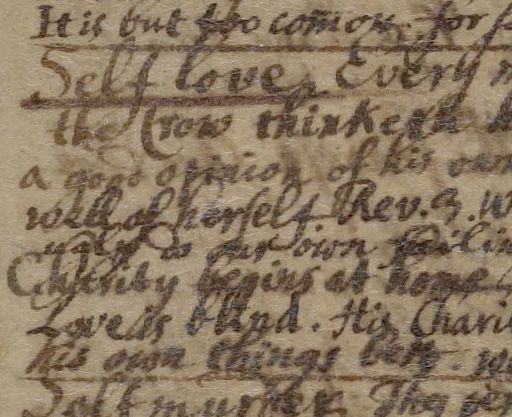 It is but too comon. for
Self love. Every
the Crow thinketh
a good opinion of his own
well of herself Rev. 3. W
our own
Charity begins at home
Love is blind. His Chari
his own things best. w
Self murder. Tho